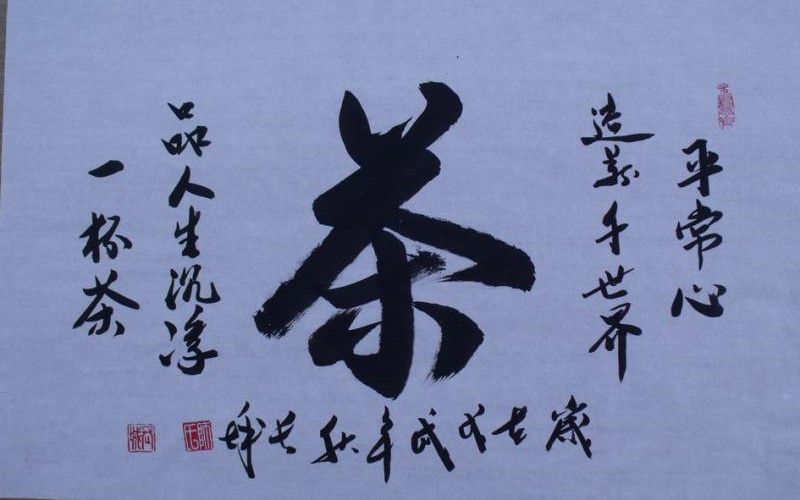 平常心
造萬千世界
茶
一杯茶
品人生沉浮
歲在戊戌年秋